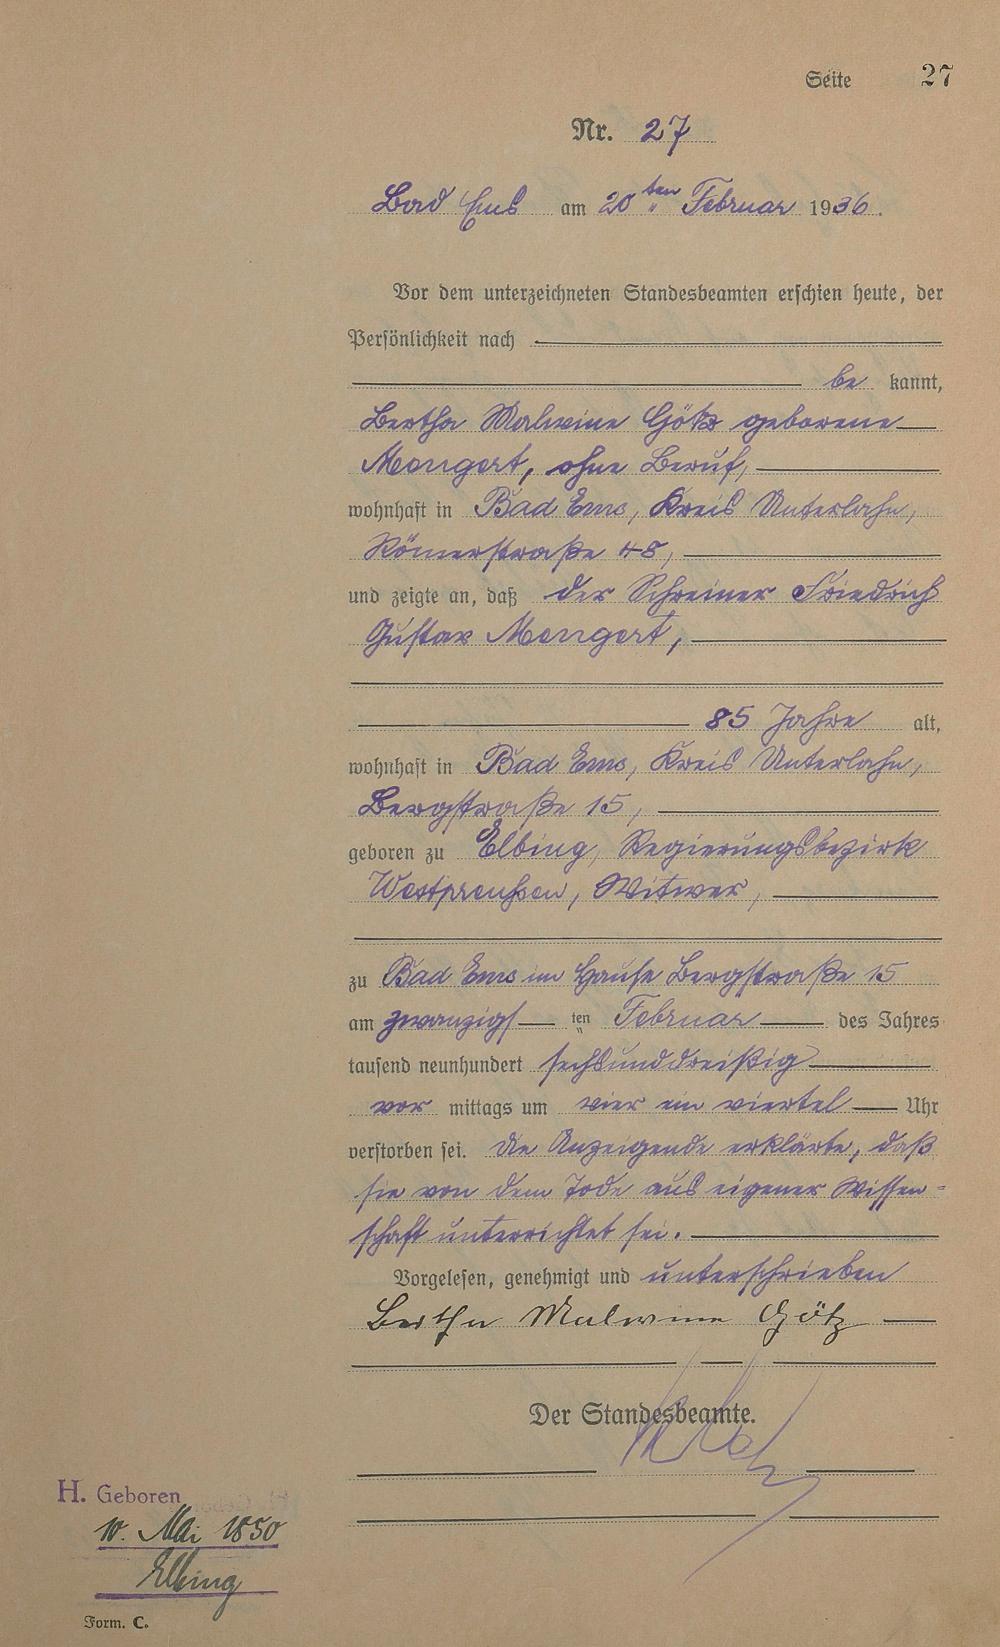 Seite 27
Nr. 27
Bad Ems am 20 ten Februar 1936.
Vor dem unterzeichneten Standesbeamten erschien heute, der
Persönlichkeit nach
be kannt,
Bertha Malwine Götz geborene
Mongert, ohne Beruf,
wohnhaft in Bad Ems, Kreis Unterlahn,
Römerstraße 48,
und zeigte an, daß der Schreiner Friedrich
Gustav Mongert,
85 Jahre alt,
wohnhaft in Bad Ems, Kreis Unterlahn,
Bergstraße 15,
geboren zu Elbing, Regierungsbezirk
Westpreußen, Witwer,
zu Bad Ems im Hause Bergstraße 15
am zwanzigs ten Februar des Jahres
tausend neunhundert sechsunddreißig
vor mittags um vier ein viertel Uhr
verstorben sei. Die Anzeigende erklärte, daß
sie von dem Tode aus eigener Wissen=
schaft unterrichtet sei.
Vorgelesen, genehmigt und unterschrieben
Bertha Malwine Götz
Der Standesbeamte.
H. Geboren
10. Mai 1850
Elbing
Form. C.